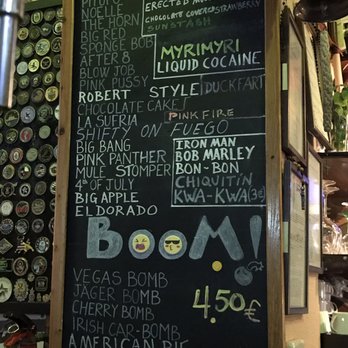 NOELLE
HORN
BIG RED
SPONGE BOB
AFTER 8
BLOW JOB
PINK PUSSY
ROBERT STYLE
CHOCOLATE CAKE!
LA SUEGRA
SHIFTY ON FUEGO
BIG BANG
PINK PANTHER
MULE STOMPER
4th OF JULY
BIG APPLE
ELDORADO
CHOCOLATE COVERED STRAWBERRY
SUNSTASH
MYRIMYRI
LIQUID COCAINE
DUCKFART
PINK FIRE
IRON MAN
BOB MARLEY
BON-BON
CHIQUITÍN
KWA-KWA (3€)
BOOM!
VEGAS BOMB
JÄGER BOMB
CHERRY BOMB
IRISH CAR-BOMB
AMERICAN PIE
4.50€